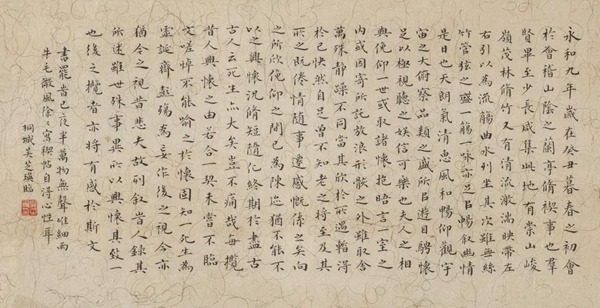 永和九年歲在癸丑暮春之初會
於會稽山陰之蘭亭脩禊事也羣
賢畢至少長咸集此地有崇山峻
嶺茂林脩竹又有清流激湍映帶左
右引以為流觴曲水列坐其次雖無絲
竹管弦之盛一觴一詠亦足以暢叙幽情
是日也天朗氣清惠風和暢仰觀宇
宙之大俯察品類之盛所以遊目騁懷
足以極視聽之娛信可樂也夫人之相
與俯仰一世或取諸懷抱晤言一室之
內或因寄所託放浪形骸之外雖取舍
萬殊靜躁不同當其欣於所遇暫得
於己快然自足曾不知老之將至及其
所之既倦情隨事遷感慨係之矣向
之所欣俛仰之間已為陳迹猶不能不
以之興懷況脩短隨化終期於盡古
人云死生亦大矣豈不痛哉每攬
昔人興懷之由若合一契未嘗不臨
文嗟悼不能喻之於懷固知一死生為
虛誕齊彭殤為妄作後之視今亦
猶今之視昔悲夫故列叙旹人錄其
所述雖世殊事異所以興懷其致一
也後之攬者亦將有感於斯文
書罷旹已夜半萬物無聲唯細雨
牛毛微風徐徐寫禊帖自淂心性耳
桐城吳芝瑛臨